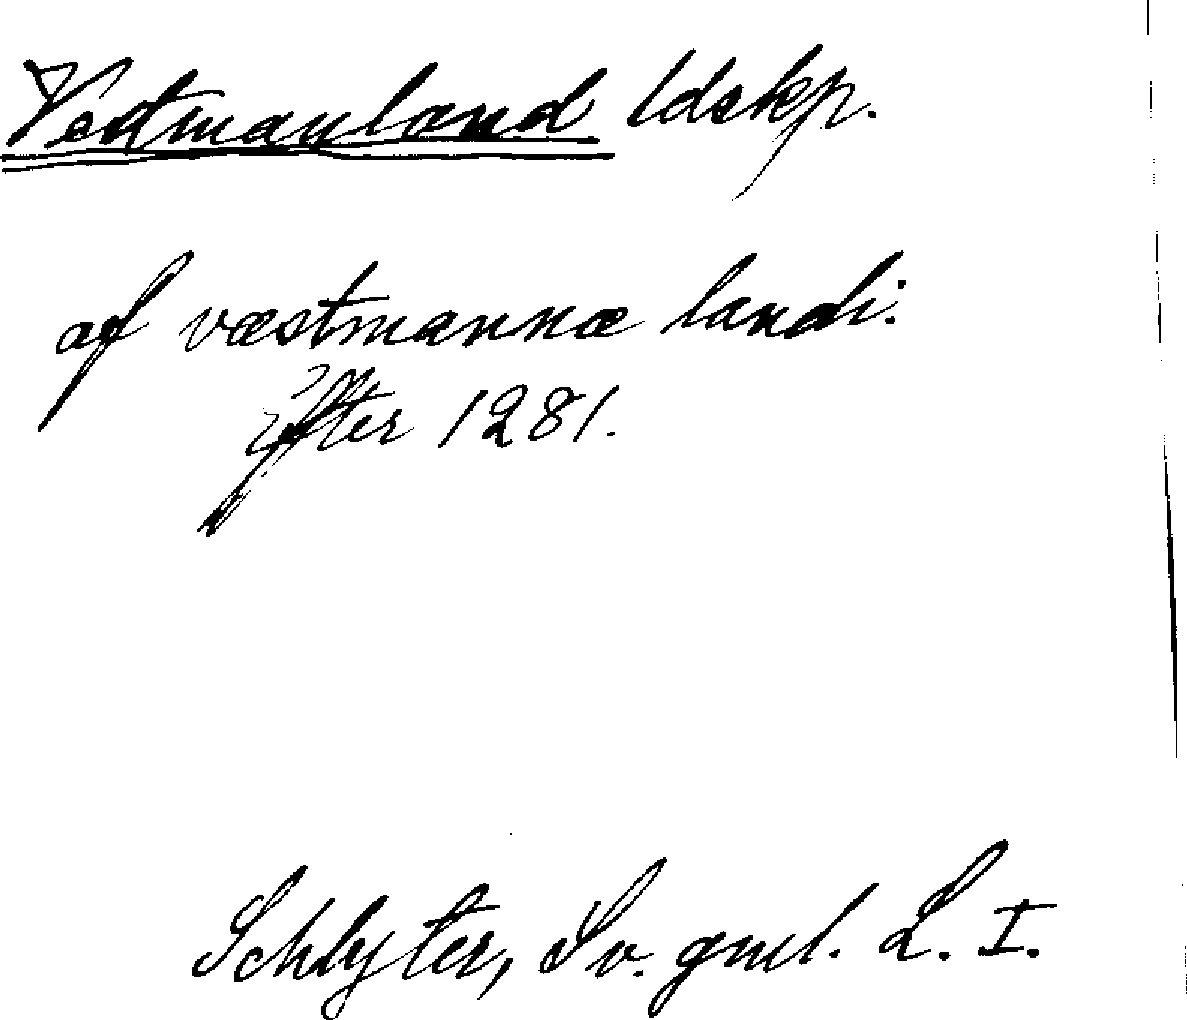 Vestmanland ldskp.
af væstmannæ landi.
efter 1281.
Schlyter, Sv. gml. L. I.